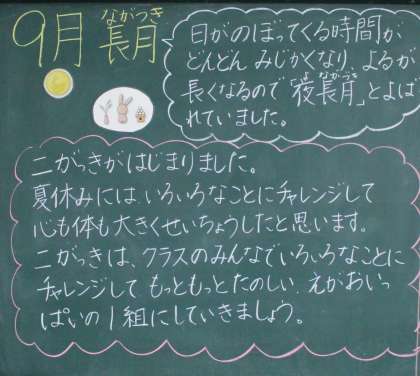 9月 長月
ながつき
日がのぼってくる時間が
どんどん みじかくなり、よるが
長くなるので「夜長月」とよば
よながつき
れていました。
二がっきがはじまりました。
夏休みには、いろいろなことにチャレンジして
心も体も大きくせいちょうしたと思います。
二がっきは、クラスのみんなでいろいろなことに
チャレンジして もっともっとたのしい、えがおいっ
ぱいの1組にしていきましょう。